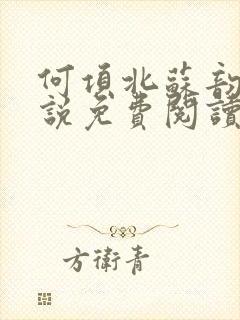 何頃北蘇韵
說免費閱讀
方衛青